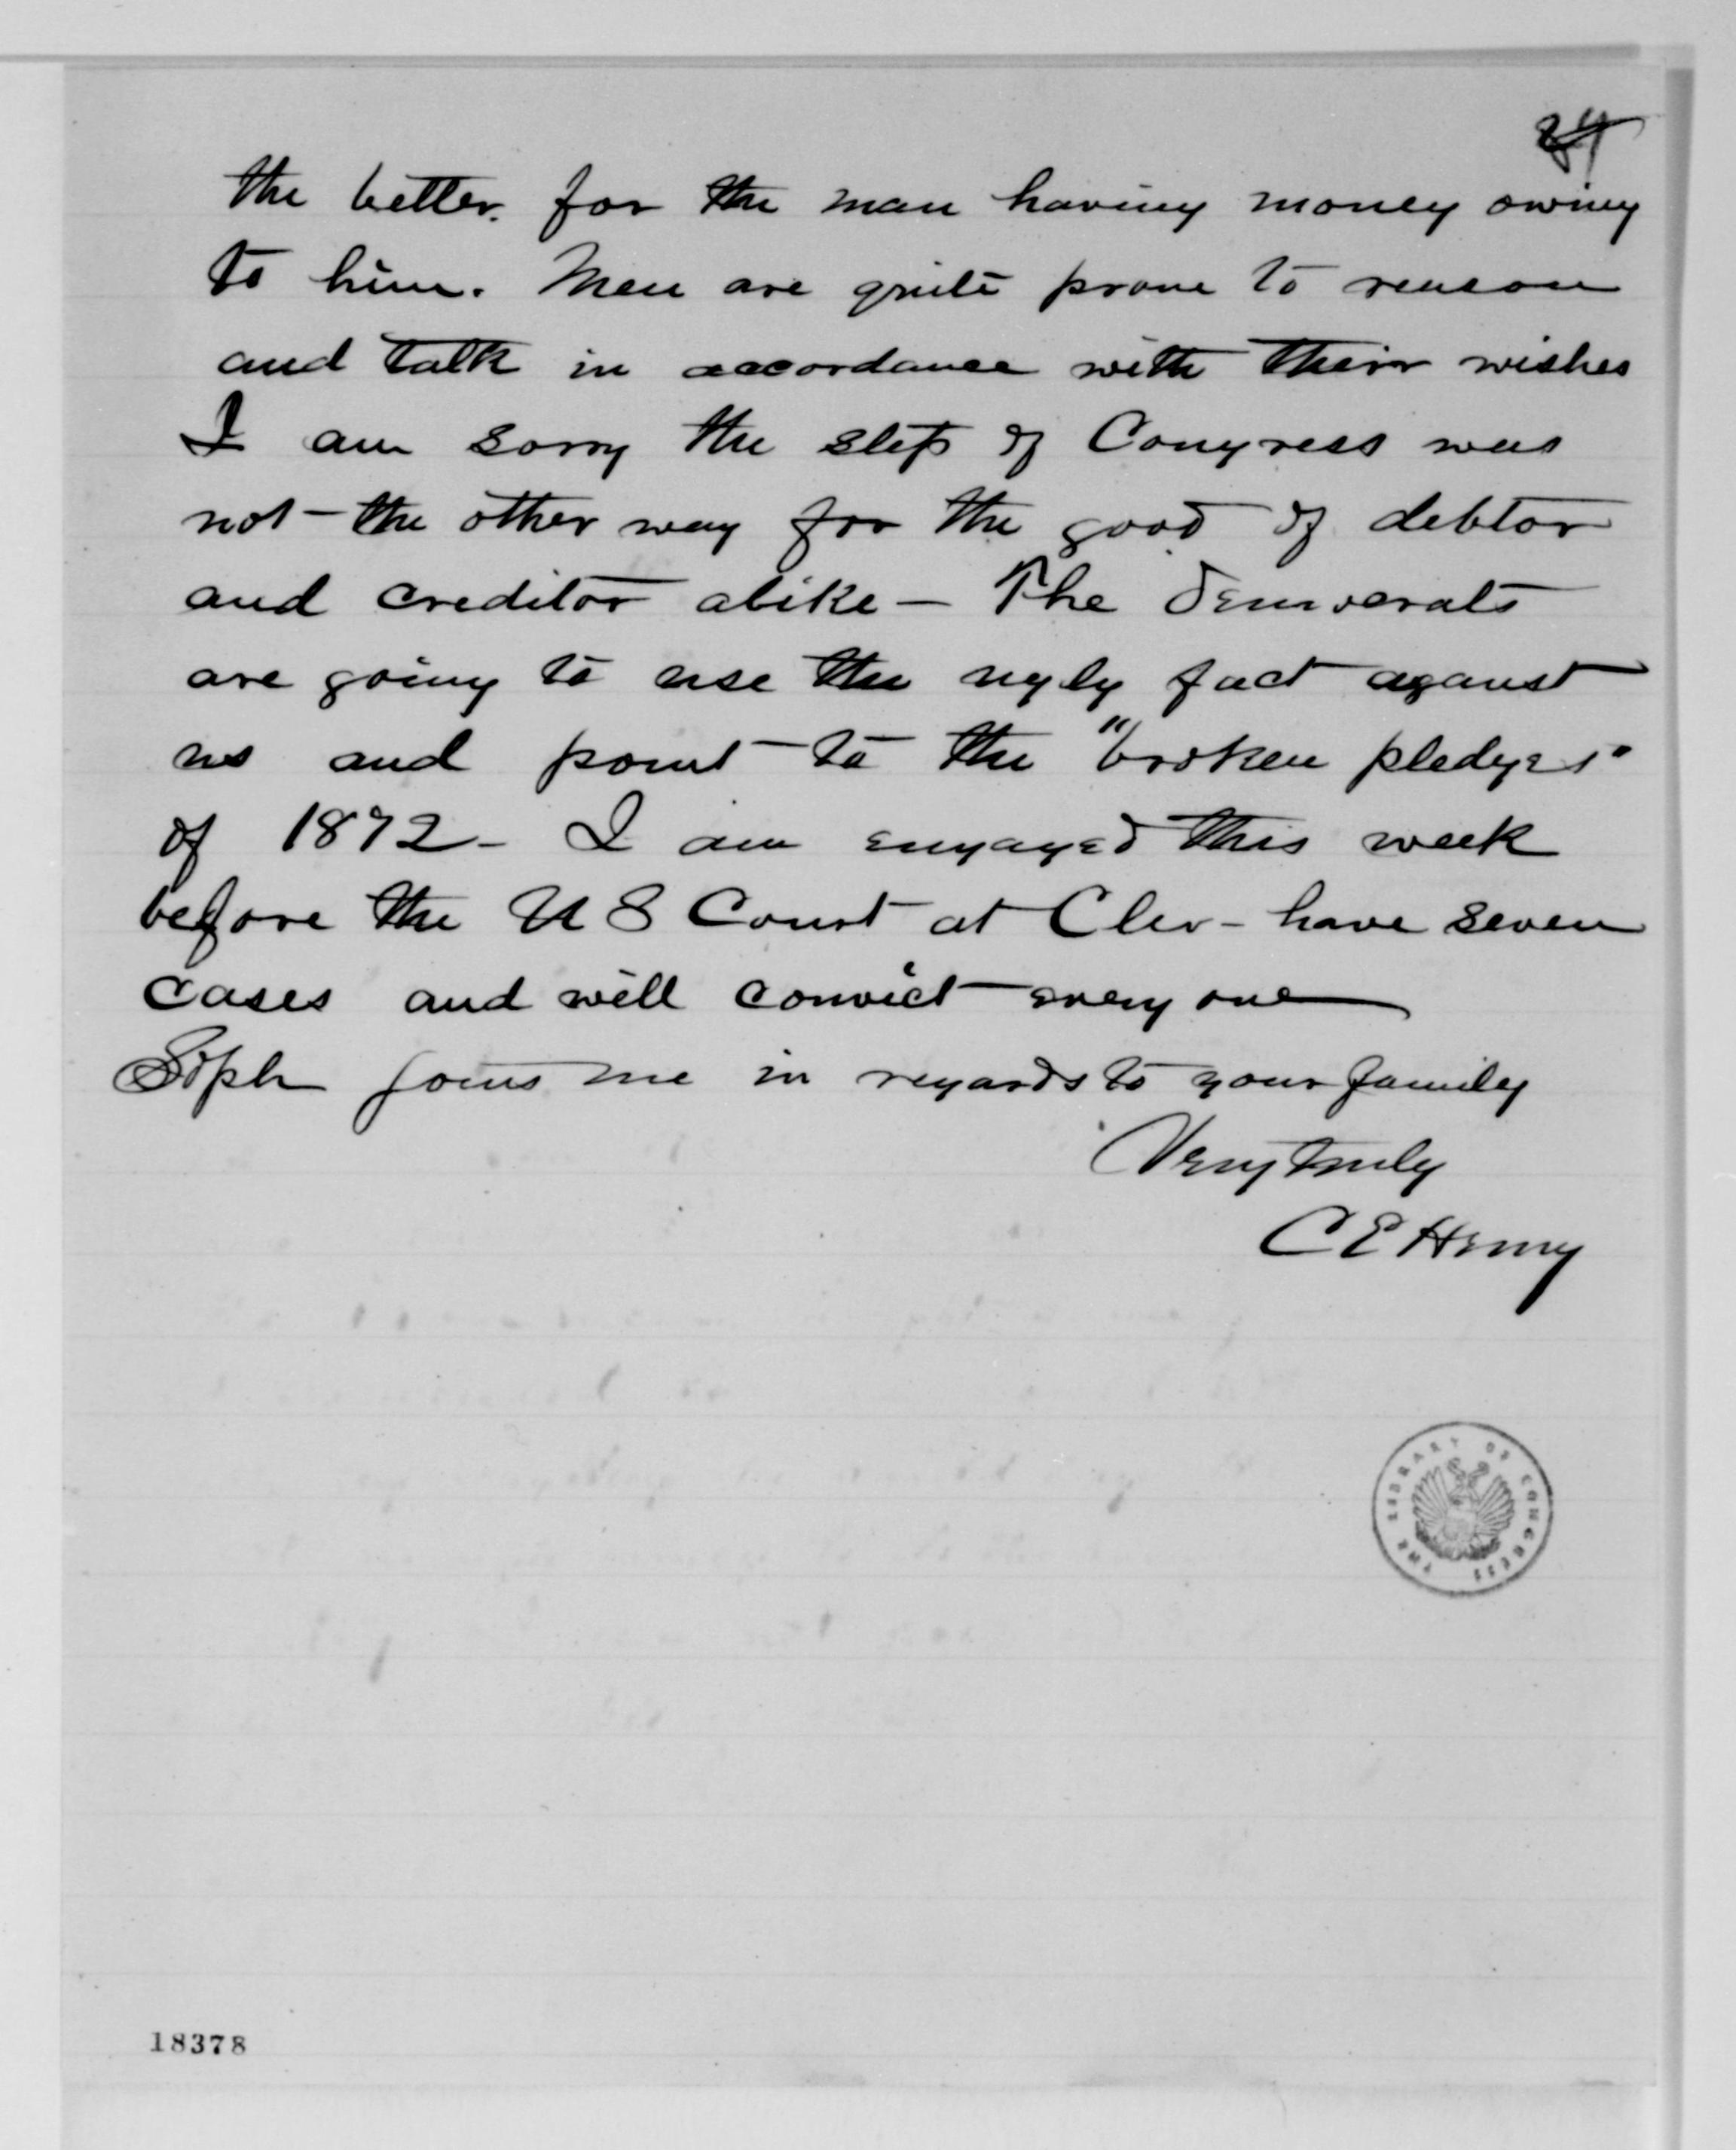 84
the better. for the man having money owing
to him. Men are quite prone to reason
and talk in accordance with their wishes
I am sorry the step of Congress was
not the other way for the good of debtor
and creditor alike — The democrats
are going to use the ugly fact against
us and point to the "broken pledges"
of 1872 - I am engaged this week
before the U S Court at Clev - have seven
cases and will convict every one
Soph joins me in regards to your family
Very truly
C E Henry
THE LIBRARY OF CONGRESS
18378